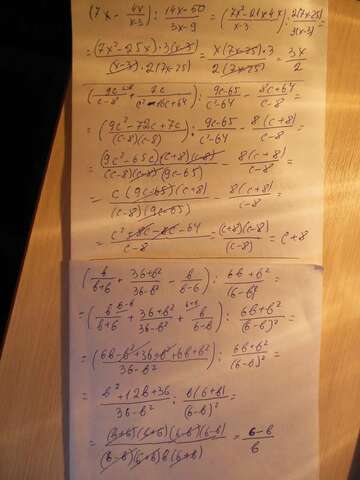 (7x - 4x/x-3) : 14x-50/3x-9 = (7x²-21x-4x/x-3) : 2(7x-25)/3(x-3) =
= (7x²-25x)·3(x-3)/(x-3)·2(7x-25) = x(7x-25)·3/2(7x-25) = 3x/2
(9c/c-8 + 7c/c²-16c+64) : 9c-65/c²-64 - 8c+64/c-8 =
= (9c²-72c+7c/(c-8)(c-8)) : 9c-65/c²-64 - 8(c+8)/c-8 =
= (9c²-65c)(c+8)(c-8)/(c-8)(c-8)(9c-65) - 8(c+8)/c-8 =
= c(9c-65)(c+8)/(c-8)(9c-65) - 8(c+8)/c-8 =
= c²+8c-8c-64/c-8 = (c+8)(c-8)/(c-8) = c+8
(b/b+6 + 36+b²/36-b² - b/b-6) : 6b+b²/(6-b)² =
= (b/b+6 + 36+b²/36-b² + b/6-b) : 6b+b²/(6-b)² =
= (6b-b²+36+b²+6b+b²/36-b²) : 6b+b²/(6-b)² =
= b²+12b+36/36-b² : b(6+b)/(6-b)² =
= (b+6)(6+b)(6-b)(6-b)/(6-b)(6+b)b(6+b) = 6-b/b